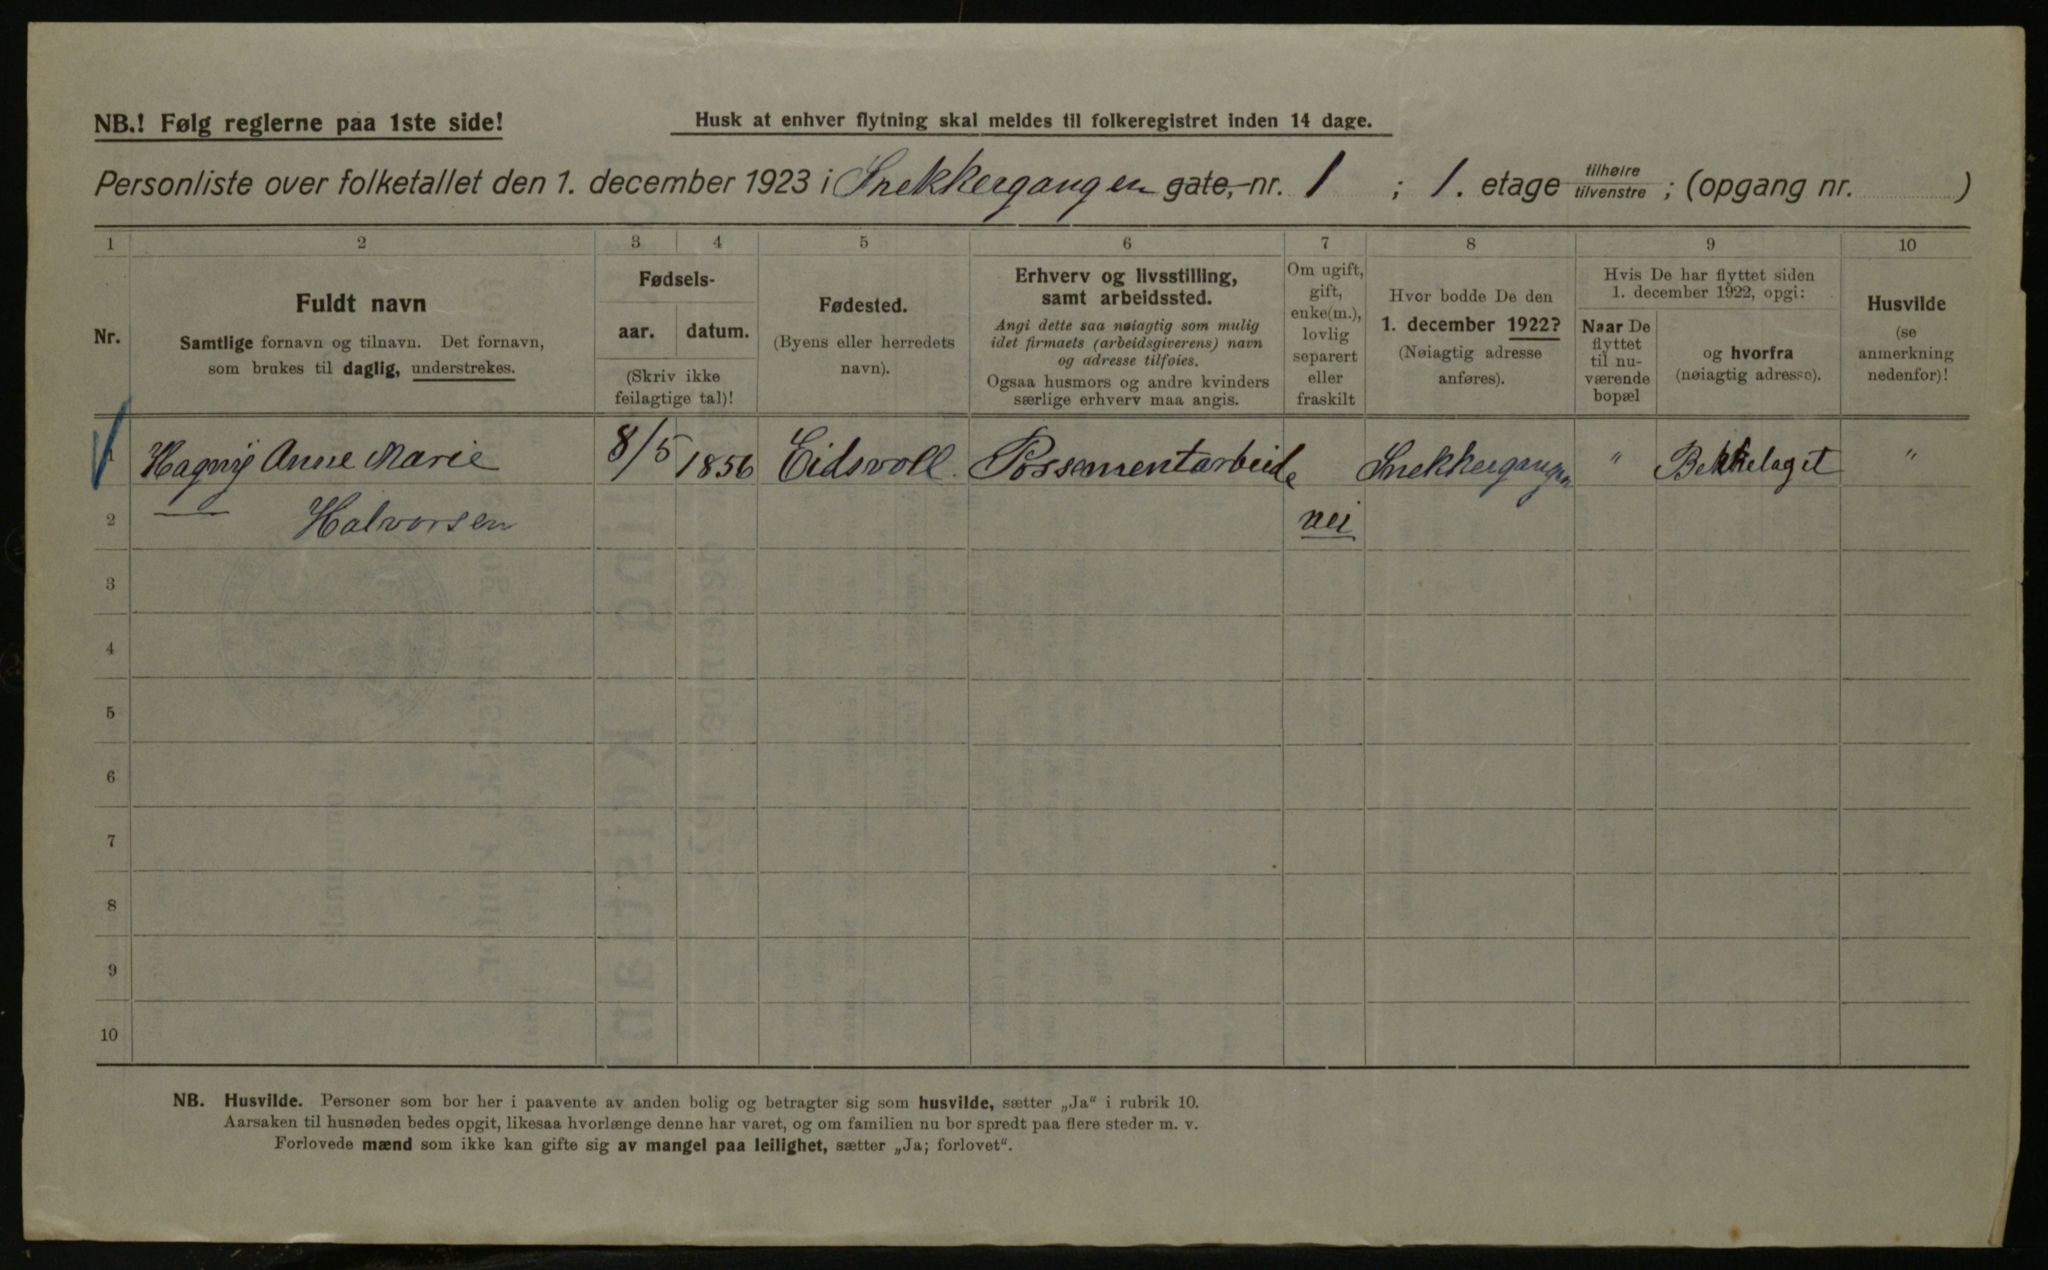 NB.! Følg reglerne paa 1ste side!
Husk at enhver flytning skal meldes til folkeregistret inden 14 dage.
Personliste over folketallet den 1. december 1923 i Snekkergangen gate, nr. 1 ; 1. etage tilhøire tilvenstre ; (opgang nr. )
1 2 3 4 5 6 7 8 9 10
Nr.
Fuldt navn
Samtlige fornavn og tilnavn. Det fornavn,
som brukes til daglig, understrekes.
Fødsels-
aar. datum.
(Skriv ikke
feilagtige tal)!
Fødested.
(Byens eller herredets
navn).
Erhverv og livsstilling,
samt arbeidssted.
Angi dette saa nøiagtig som mulig
idet firmaets (arbeidsgiverens) navn
og adresse tilføies.
Ogsaa husmors og andre kvinders
særlige erhverv maa angis.
Om ugift,
gift,
enke(m.),
lovlig
separert
eller
fraskilt
Hvor bodde De den
1. december 1922?
(Nøiagtig adresse
anføres).
Hvis De har flyttet siden
1. december 1922, opgi:
Naar De
flyttet
til nu-
værende
bopæl
og hvorfra
(nøiagtig adresse).
Husvilde
(se
anmerkning
nedenfor)!
1 Anne Marie 8/5 1856 Eidsvoll Possementarbeide Snekkergangen " Bekkelaget "
2 Halvorsen nei
3
4
5
6
7
8
9
10
NB. Husvilde. Personer som bor her i paavente av anden bolig og betragter sig som husvilde, sætter „Ja“ i rubrik 10.
Aarsaken til husnøden bedes opgit, likesaa hvorlænge denne har varet, og om familien nu bor spredt paa flere steder m. v.
Forlovede mænd som ikke kan gifte sig av mangel paa leilighet, sætter „Ja; forlovet“.